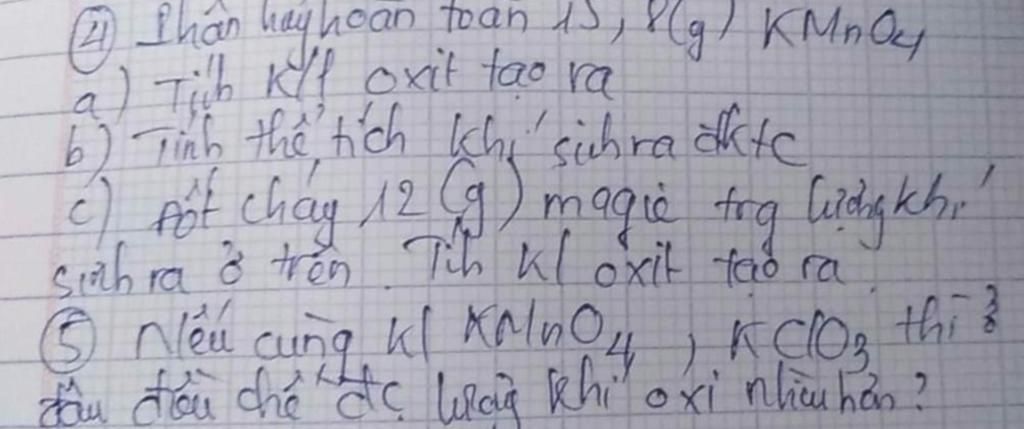 ④ Phân hủy hoàn toàn 15,8(g) KMnO4
a) Tính K/l oxit tạo ra
b) Tính thể tích khí sinh ra đktc
c) Đốt cháy 12 (g) magiê trg lượng khí
sinh ra ở trên. Tính Kl oxit tạo ra
⑤ Nếu cùng Kl KMnO4, KClO3 thì
điều chế đc lượng khí oxi nhiều hơn?